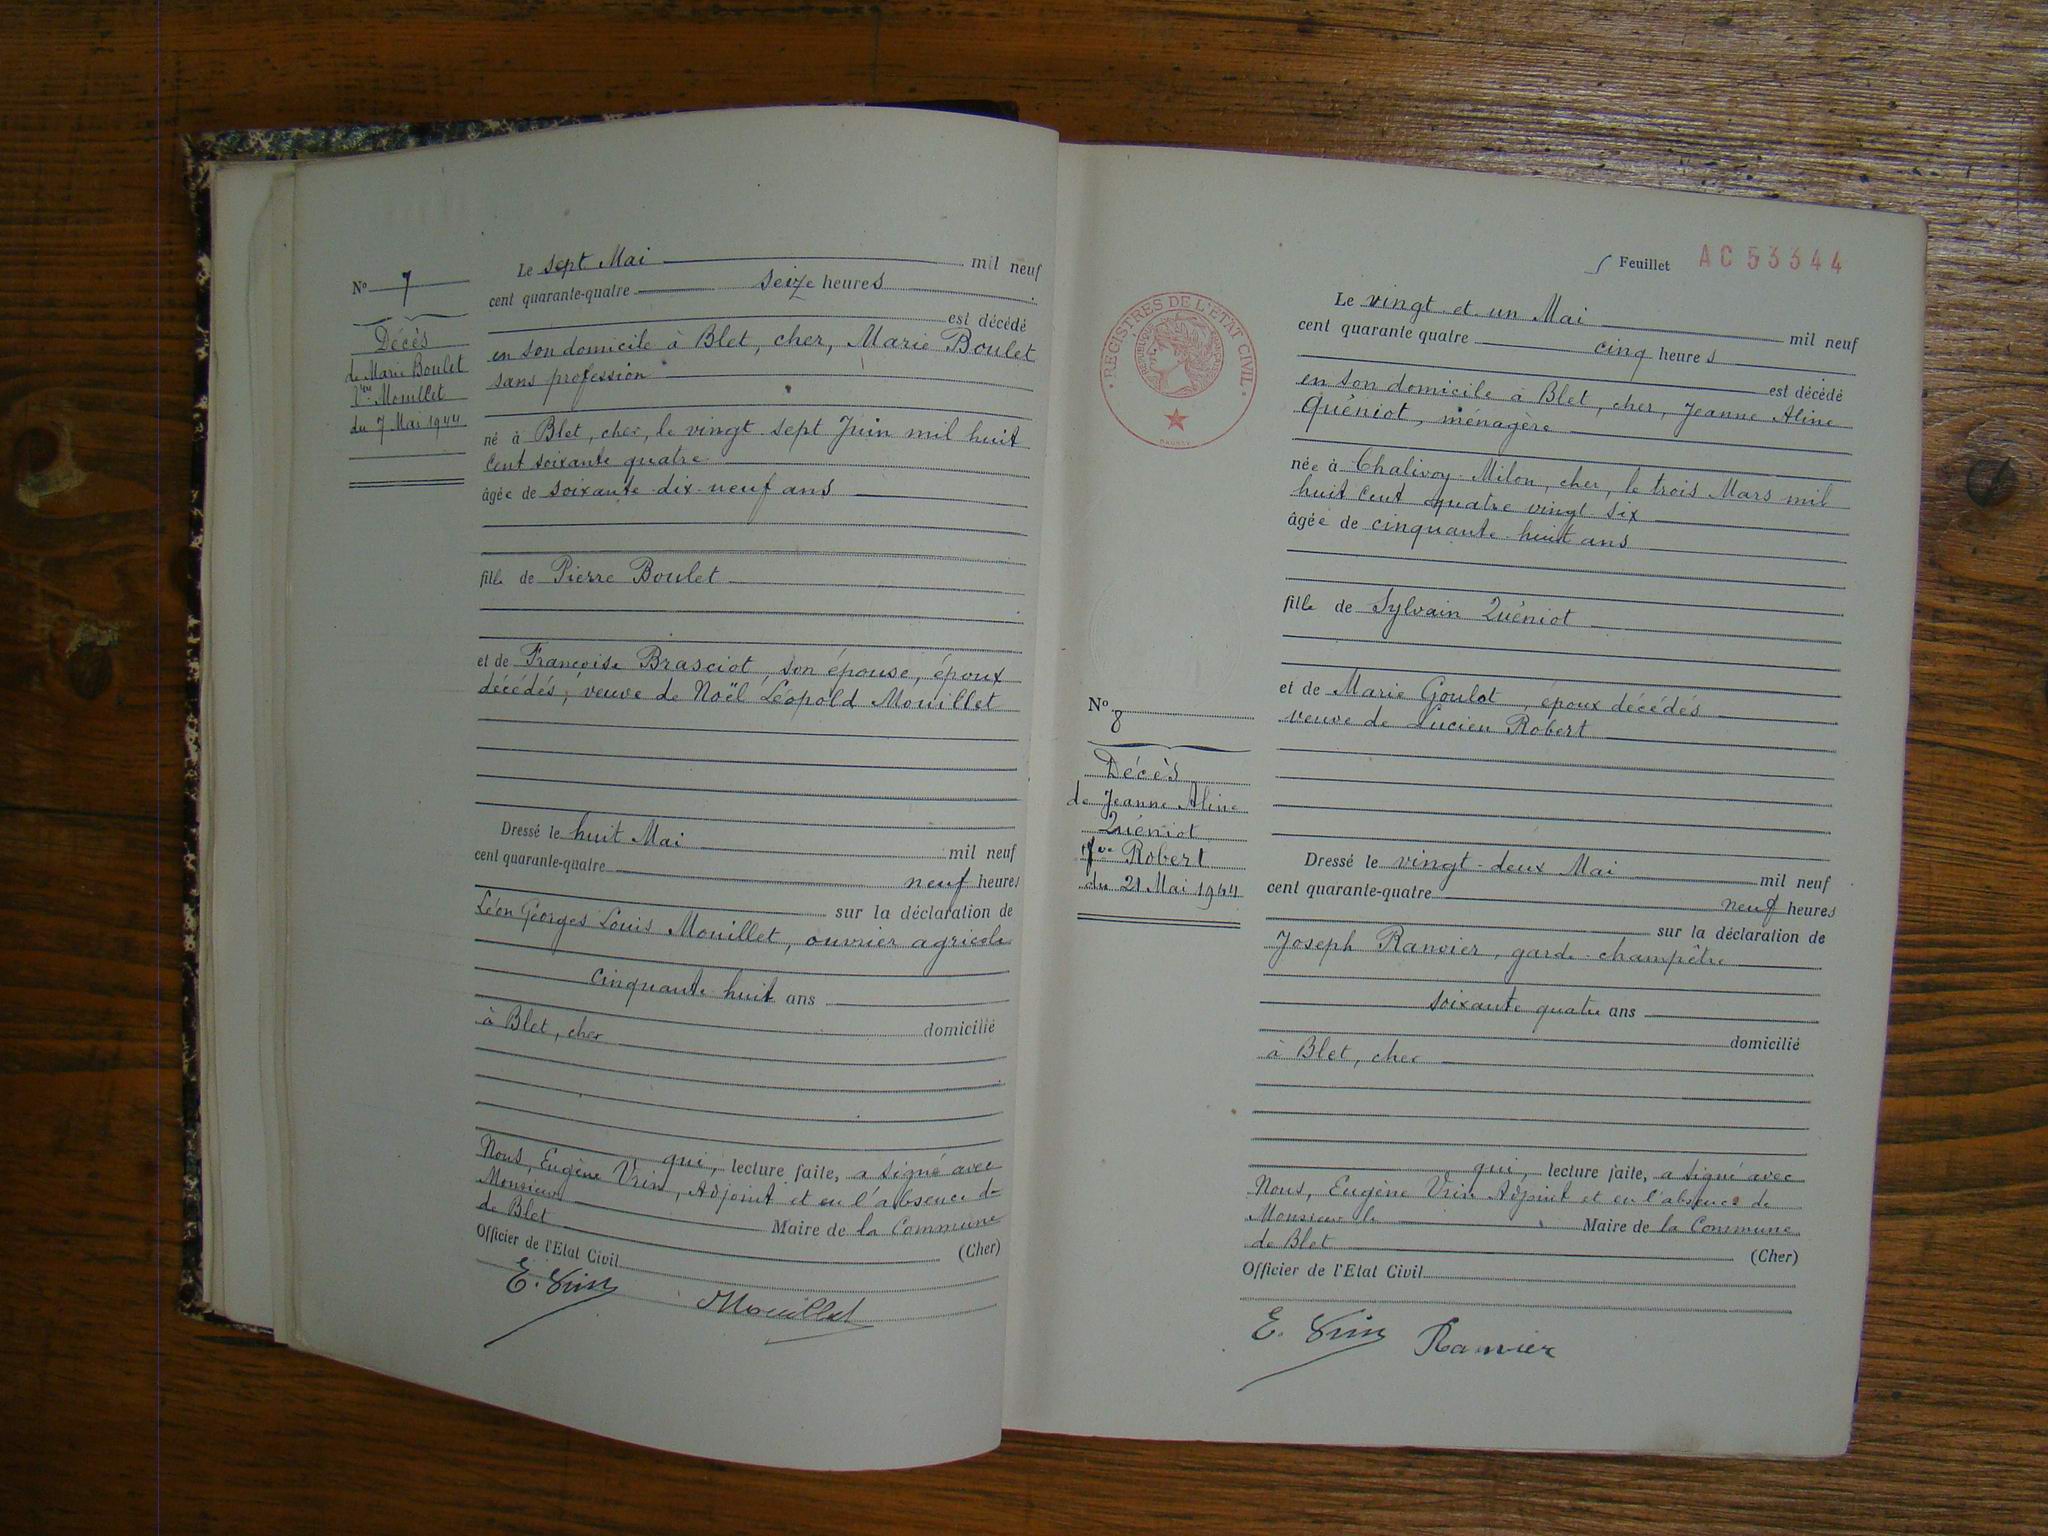 N° 7
Décès
de Marie Boulet
Vve Mouillet
du 7 Mai 1944
Le sept Mai mil neuf
cent quarante-quatre seize heures
est décédé
en son domicile à Blet, cher, Marie Boulet
sans profession
né à Blet, cher, le vingt sept Juin mil huit
cent soixante quatre
âgée de soixante-dix-neuf ans
fille de Pierre Boulet
et de Françoise Brasciot, son épouse, époux
décédés, veuve de Noël Léopold Mouillet
Dressé le huit Mai mil neuf
cent quarante-quatre neuf heures
sur la déclaration de
Léon Georges Louis Mouillet, ouvrier agricole
cinquante-huit ans
domicilié
à Blet, cher
qui, lecture faite, a signé avec
Nous, Eugène Vrin, Adjoint et en l'absence de
Monsieur Maire de la Commune
de Blet (Cher)
Officier de l'Etat Civil
E. Vrin Mouillet
Feuillet AC 53344
REGISTRES DE L'ETAT CIVIL
Le vingt et un Mai mil neuf
cent quarante quatre cinq heures
est décédé
en son domicile à Blet, cher, Jeanne Aline
Quéniot, ménagère
née à Chalivoy-Milon, cher, le trois Mars mil
huit cent quatre vingt six
âgée de cinquante-huit ans
fille de Sylvain Quéniot
et de Marie Goulot, époux décédés
veuve de Lucien Robert
N° 8
Décès
de Jeanne Aline
Quéniot
Vve Robert
du 21 Mai 1944
Dressé le vingt-deux Mai mil neuf
cent quarante-quatre neuf heures
sur la déclaration de
Joseph Ranvier, garde-champêtre
soixante quatre ans
domicilié
à Blet, cher
qui, lecture faite, a signé avec
Nous, Eugène Vrin Adjoint et en l'absence de
Monsieur le Maire de la Commune
de Blet (Cher)
Officier de l'Etat Civil
E. Vrin Ranvier